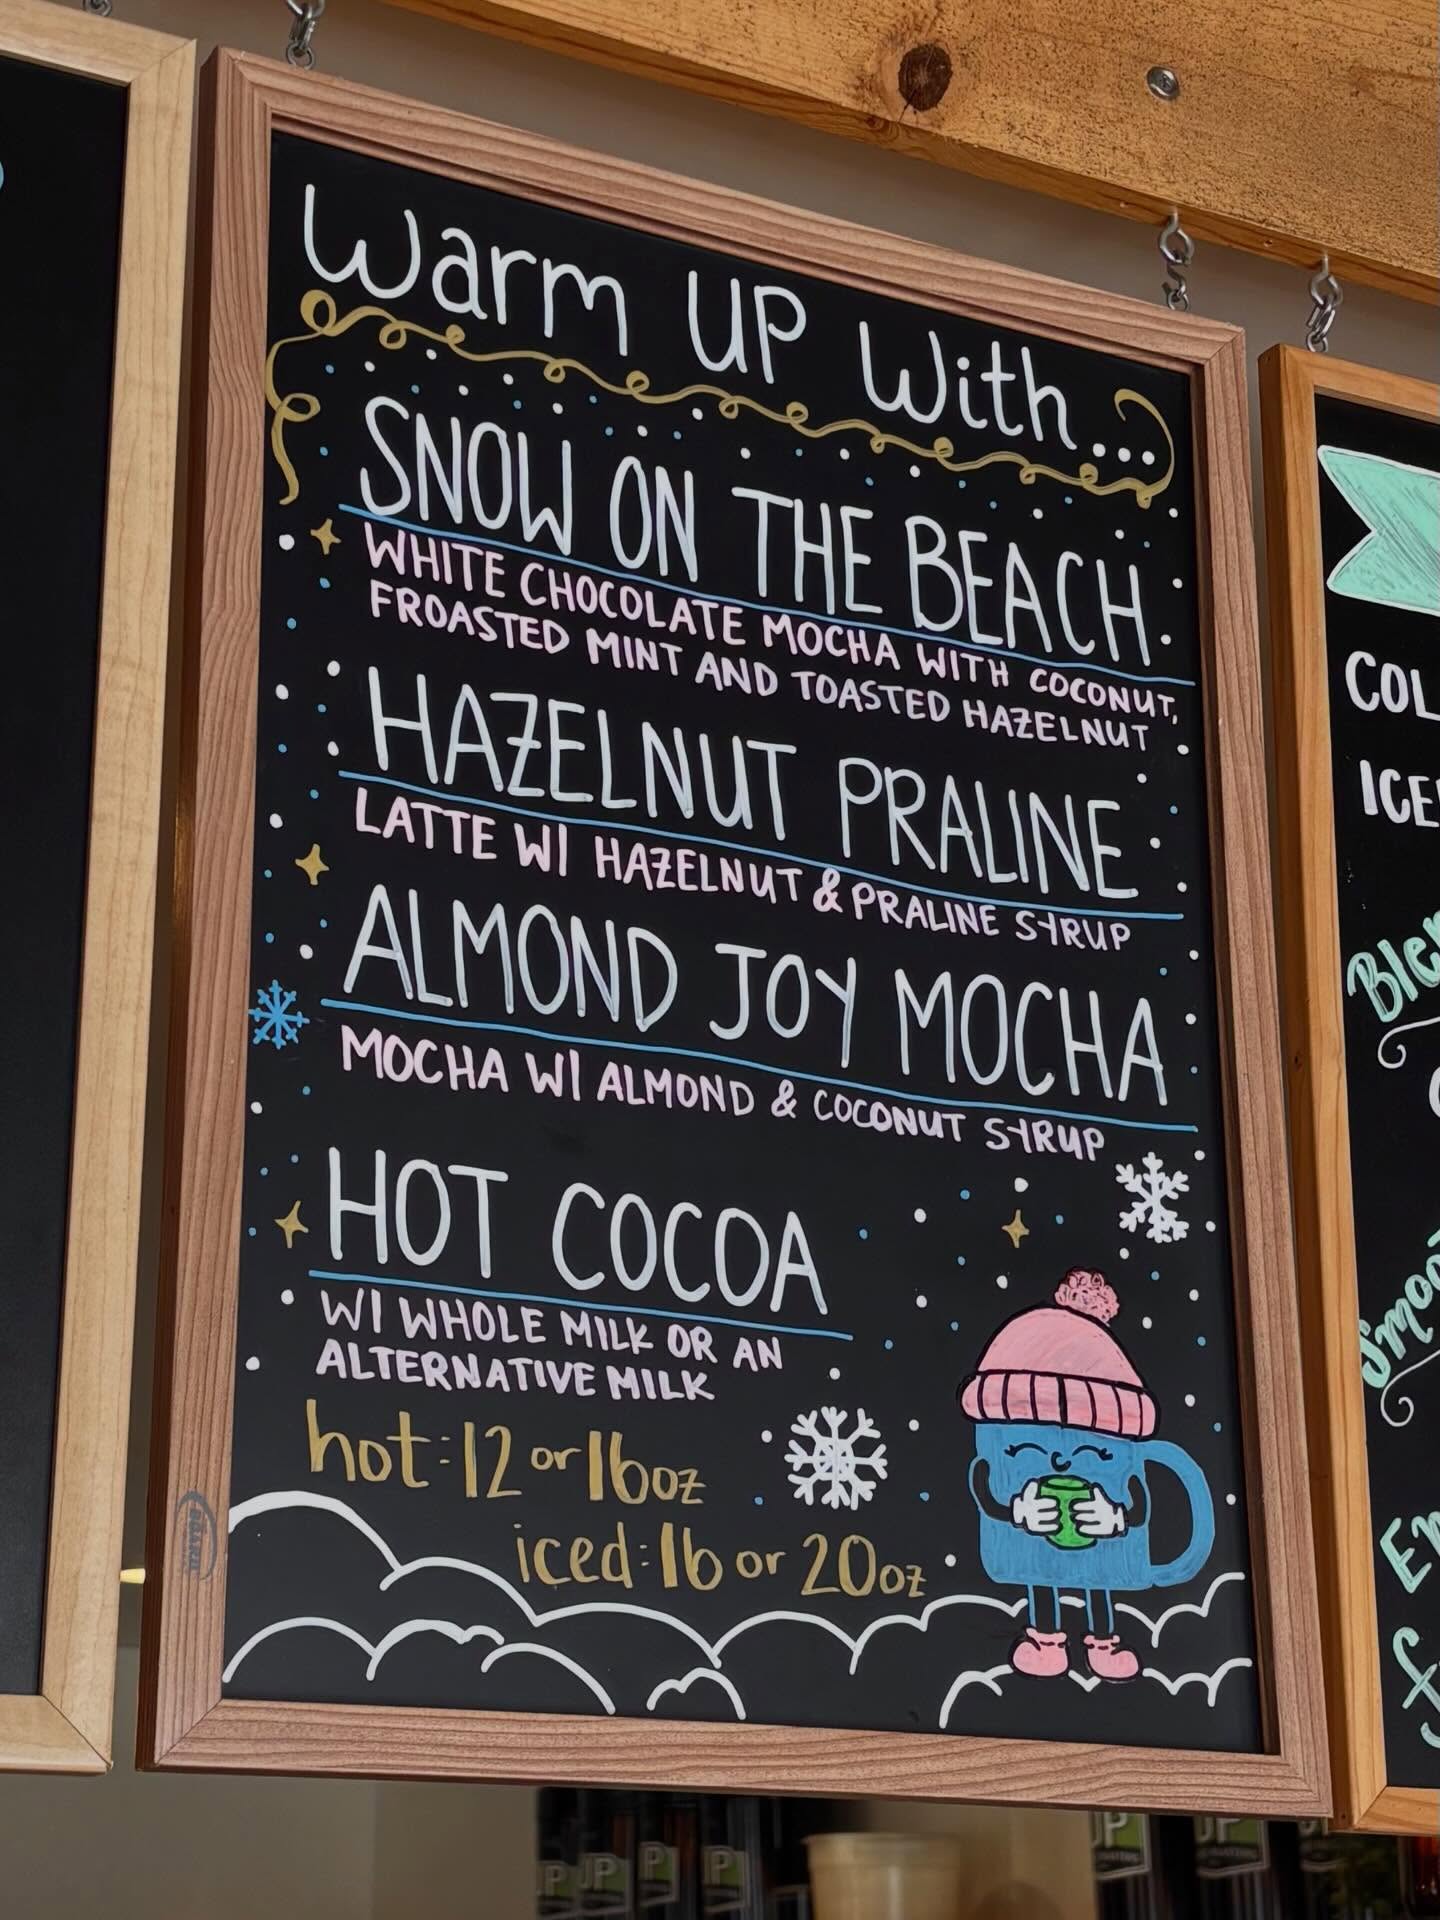 Warm UP With...
SNOW ON THE BEACH
WHITE CHOCOLATE MOCHA WITH COCONUT,
FROASTED MINT AND TOASTED HAZELNUT
HAZELNUT PRALINE
LATTE W/ HAZELNUT & PRALINE SYRUP
ALMOND JOY MOCHA
MOCHA W/ ALMOND & COCONUT SYRUP
HOT COCOA
W/ WHOLE MILK OR AN
ALTERNATIVE MILK
hot: 12 or 16oz
iced: 16 or 20oz
COL
ICE
Ble
Smoo
En
f
UP
P
P
UP
UP